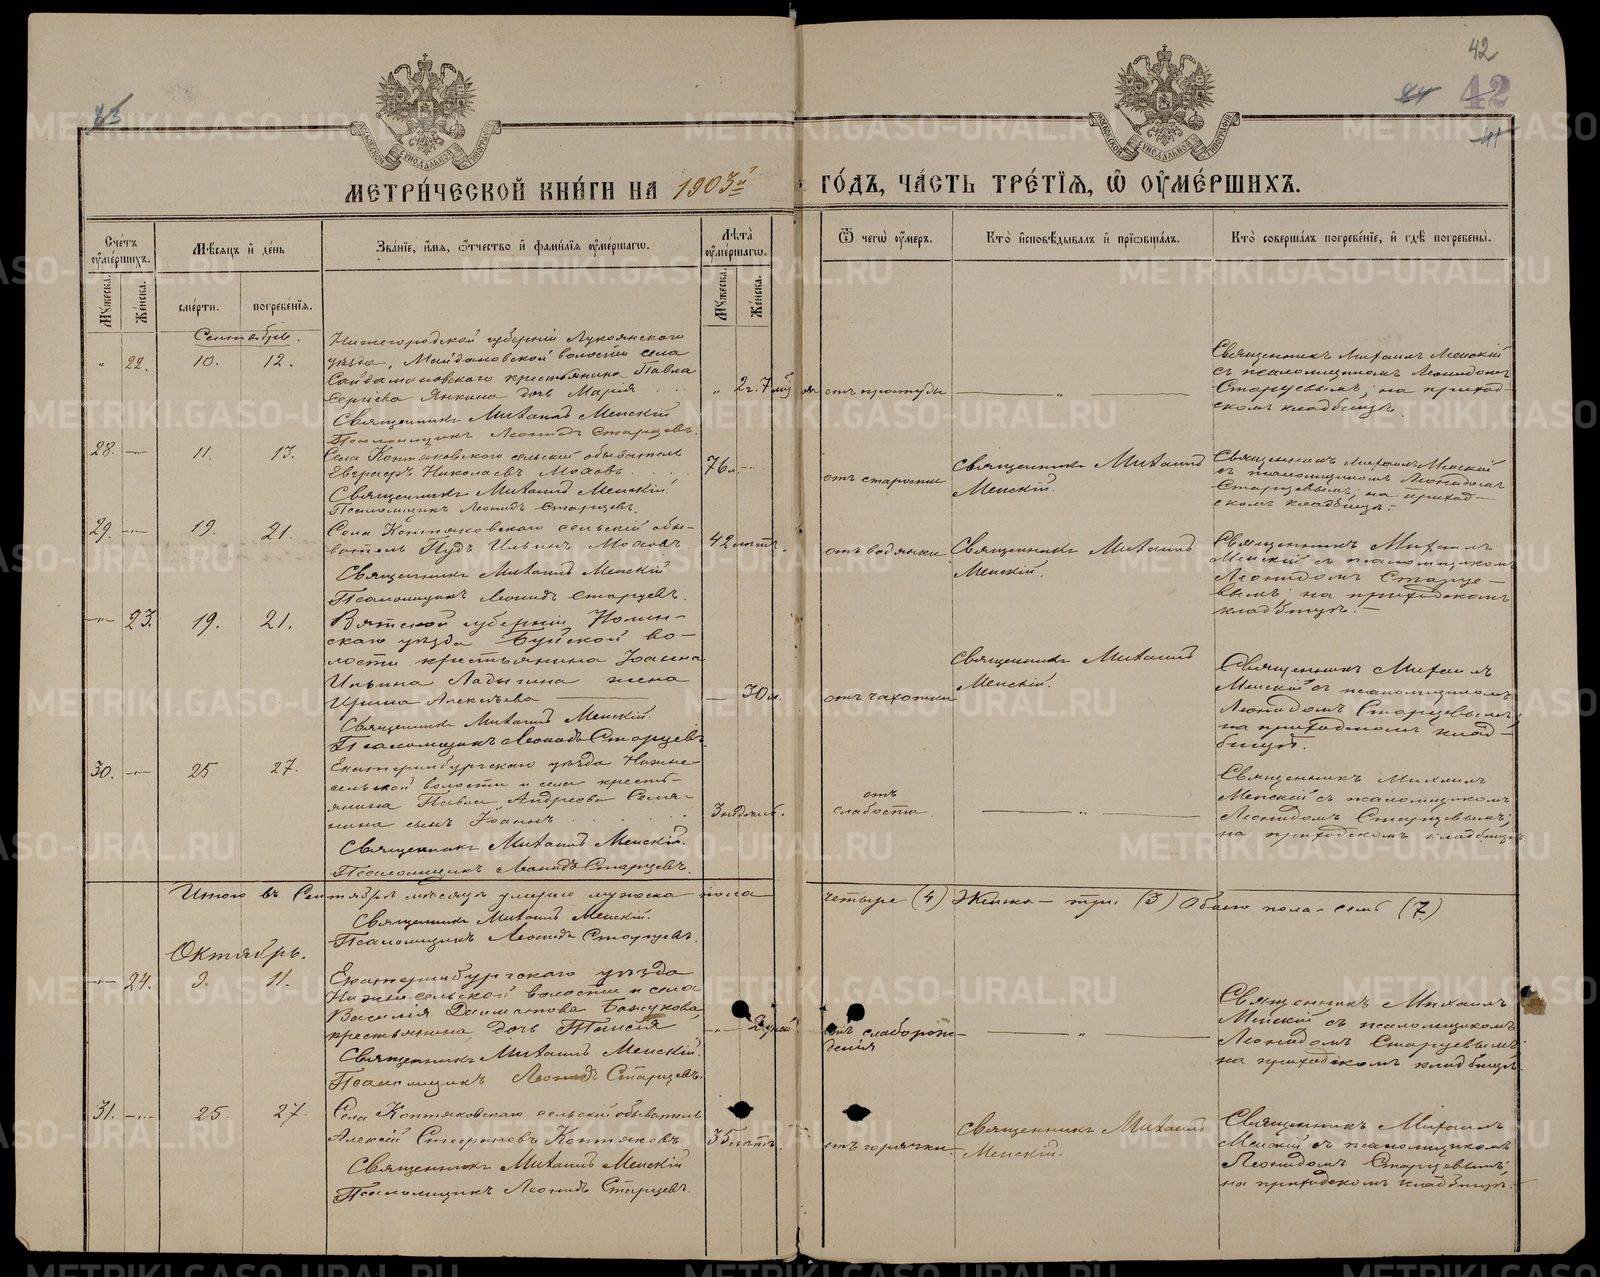 42
83
84
42
41
МЕТРИЧЕСКОЙ КНИГИ НА 1903й ГОДЪ, ЧАСТЬ ТРЕТІЯ, Ѿ ОУМЕРШИХЪ.
Счетъ оумершихъ.
Мужеска.
Женска.
Мѣсяцъ и день
смерти.
погребенія.
Званіе, имя, отчество и фамилія оумершагѡ.
Лѣта оумершагѡ.
Мужеска.
Женска.
Ѿ чегѡ оумеръ.
Кто исповѣдывалъ и пріобщалъ.
Кто совершалъ погребеніе, и гдѣ погребены.
Сентябрь.
" 22. 10. 12.
Нижегородской губерніи Лукоянскаго
уѣзда, Майдановской волости села
крестьянина Павла
Янкина дочь Марія
" 2 г. 7 мѣ
отъ простуды
"
Священникъ Михаилъ Менскій
съ псаломщикомъ Леонидомъ
Старцевымъ; на приход-
скомъ кладбищѣ.
Священникъ Михаилъ Менскій
Псаломщикъ Леонидъ Старцевъ.
28. -"- 11. 13.
Села Коптяковского сельскій обыватель
Николаевъ Моховъ
76 л.
отъ старости
Священникъ Михаилъ
Менскій.
Священникъ Михаилъ Менскій
съ псаломщикомъ Леонидомъ
Старцевымъ; на приход-
скомъ кладбищѣ.
Священникъ Михаилъ Менскій.
Псаломщикъ Леонидъ Старцевъ.
29. -"- 19. 21.
Села Коптяковского сельскій обы-
ватель Пудъ Ильинъ Моховъ.
42 лѣтъ.
отъ водянки
Священникъ Михаилъ
Менскій.
Священникъ Михаилъ
Менскій съ псаломщикомъ
Леонидомъ Старце-
вымъ; на приходскомъ
кладбищѣ.
Священникъ Михаилъ Менскій
Псаломщикъ Леонидъ Старцевъ.
-"- 23. 19. 21.
Вятской губерніи Нолин-
скаго уѣзда Буйской во-
лости крестьянина Іоанна
Ильина Ладыгина жена
Ирина Алексѣева
30 л.
отъ чахотки
Священникъ Михаилъ
Менскій.
Священникъ Михаилъ
Менскій съ псаломщикомъ
Леонидомъ Старцевымъ;
на приходскомъ клад-
бищѣ.
Священникъ Михаилъ Менскій.
Псаломщикъ Леонидъ Старцевъ.
30. -"- 25. 27.
Екатеринбургскаго уѣзда Нижне-
сельской волости и села кресть-
янина Павла Андреева Семя-
нина сынъ Іоаннъ
3 недѣль
отъ
слабости
"
Священникъ Михаилъ
Менскій съ псаломщикомъ
Леонидомъ Старцевымъ;
на приходскомъ кладбищѣ
Священникъ Михаилъ Менскій.
Псаломщикъ Леонидъ Старцевъ.
Итого въ Сентябрѣ мѣсяцѣ умерло мужеска пола четыре (4) Женска – три (3) Обоего пола – семь (7)
Священникъ Михаилъ Менскій.
Псаломщикъ Леонидъ Старцевъ.
Октябрь.
-"- 24. 9. 11.
Екатеринбургскаго уѣзда
Нижнесельской волости и села
Василія
крестьянина дочь Таисія
2 дней
отъ слаборож-
денія
"
Священникъ Михаилъ
Менскій съ псаломщикомъ
Леонидомъ Старцевымъ
на приходскомъ кладбищѣ.
Священникъ Михаилъ Менскій.
Псаломщикъ Леонидъ Старцевъ.
31. -"- 25. 27.
Села Коптяковскаго сельскій обыватель
Алексій Стефановъ Коптяковъ
35 лѣтъ.
отъ горячки
Священникъ Михаилъ
Менскій.
Священникъ Михаилъ
Менскій съ псаломщикомъ
Леонидомъ Старцевымъ;
на приходскомъ кладбищѣ.
Священникъ Михаилъ Менскій
Псаломщикъ Леонидъ Старцевъ.
METRIKI.GASO-URAL.RU